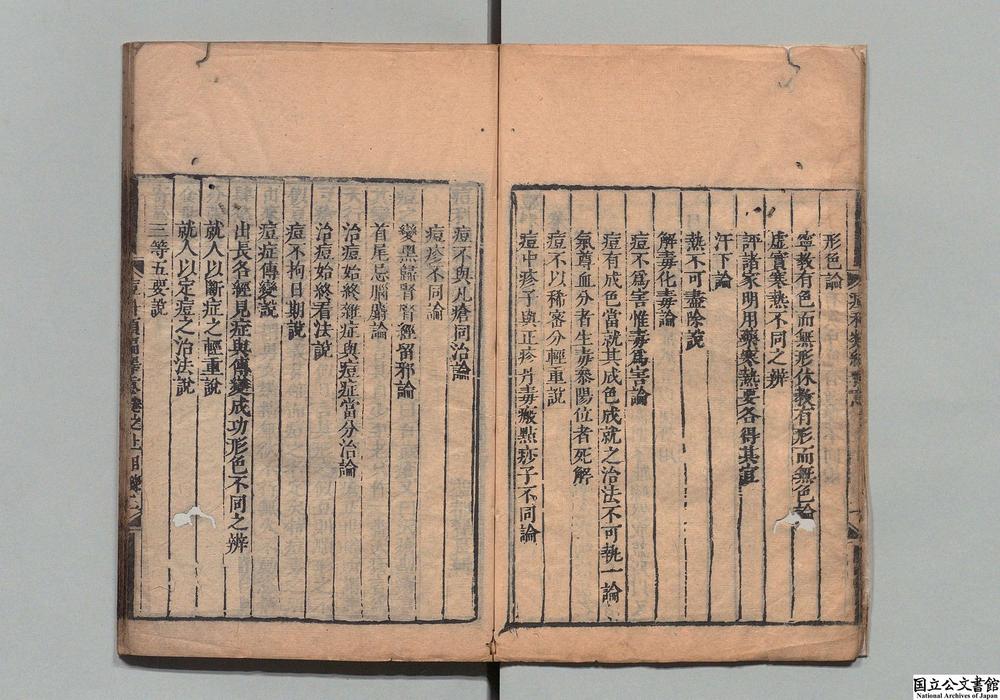 形色論
寧救有色而無形休救有形而無色論
虛實寒熱不同之辨
評諸家明用藥寒熱要各得其宜
汗下論
熱不可盡除說
解毒化毒論
痘不爲害惟毒爲害論
痘有成色當就其成色成就之治法不可執一論
氣尊血分者生毒參陽位者死解
痘不以稀密分輕重說
痘中疹子與正疹丹毒癍點痧子不同論
痘不與凡瘡同治論
痘疹不同論
變黑歸腎腎經留邪論
首尾忌腦麝論
治痘始終雜症與痘症當分治論
治痘始終看法說
痘不拘日期說
痘症傳變說
出長各經見症與傳變成功形色不同之辨
就人以斷症之輕重說
就人以定痘之治法說
三等五要說
卷之上目錄二
国立公文書館
National Archives of Japan